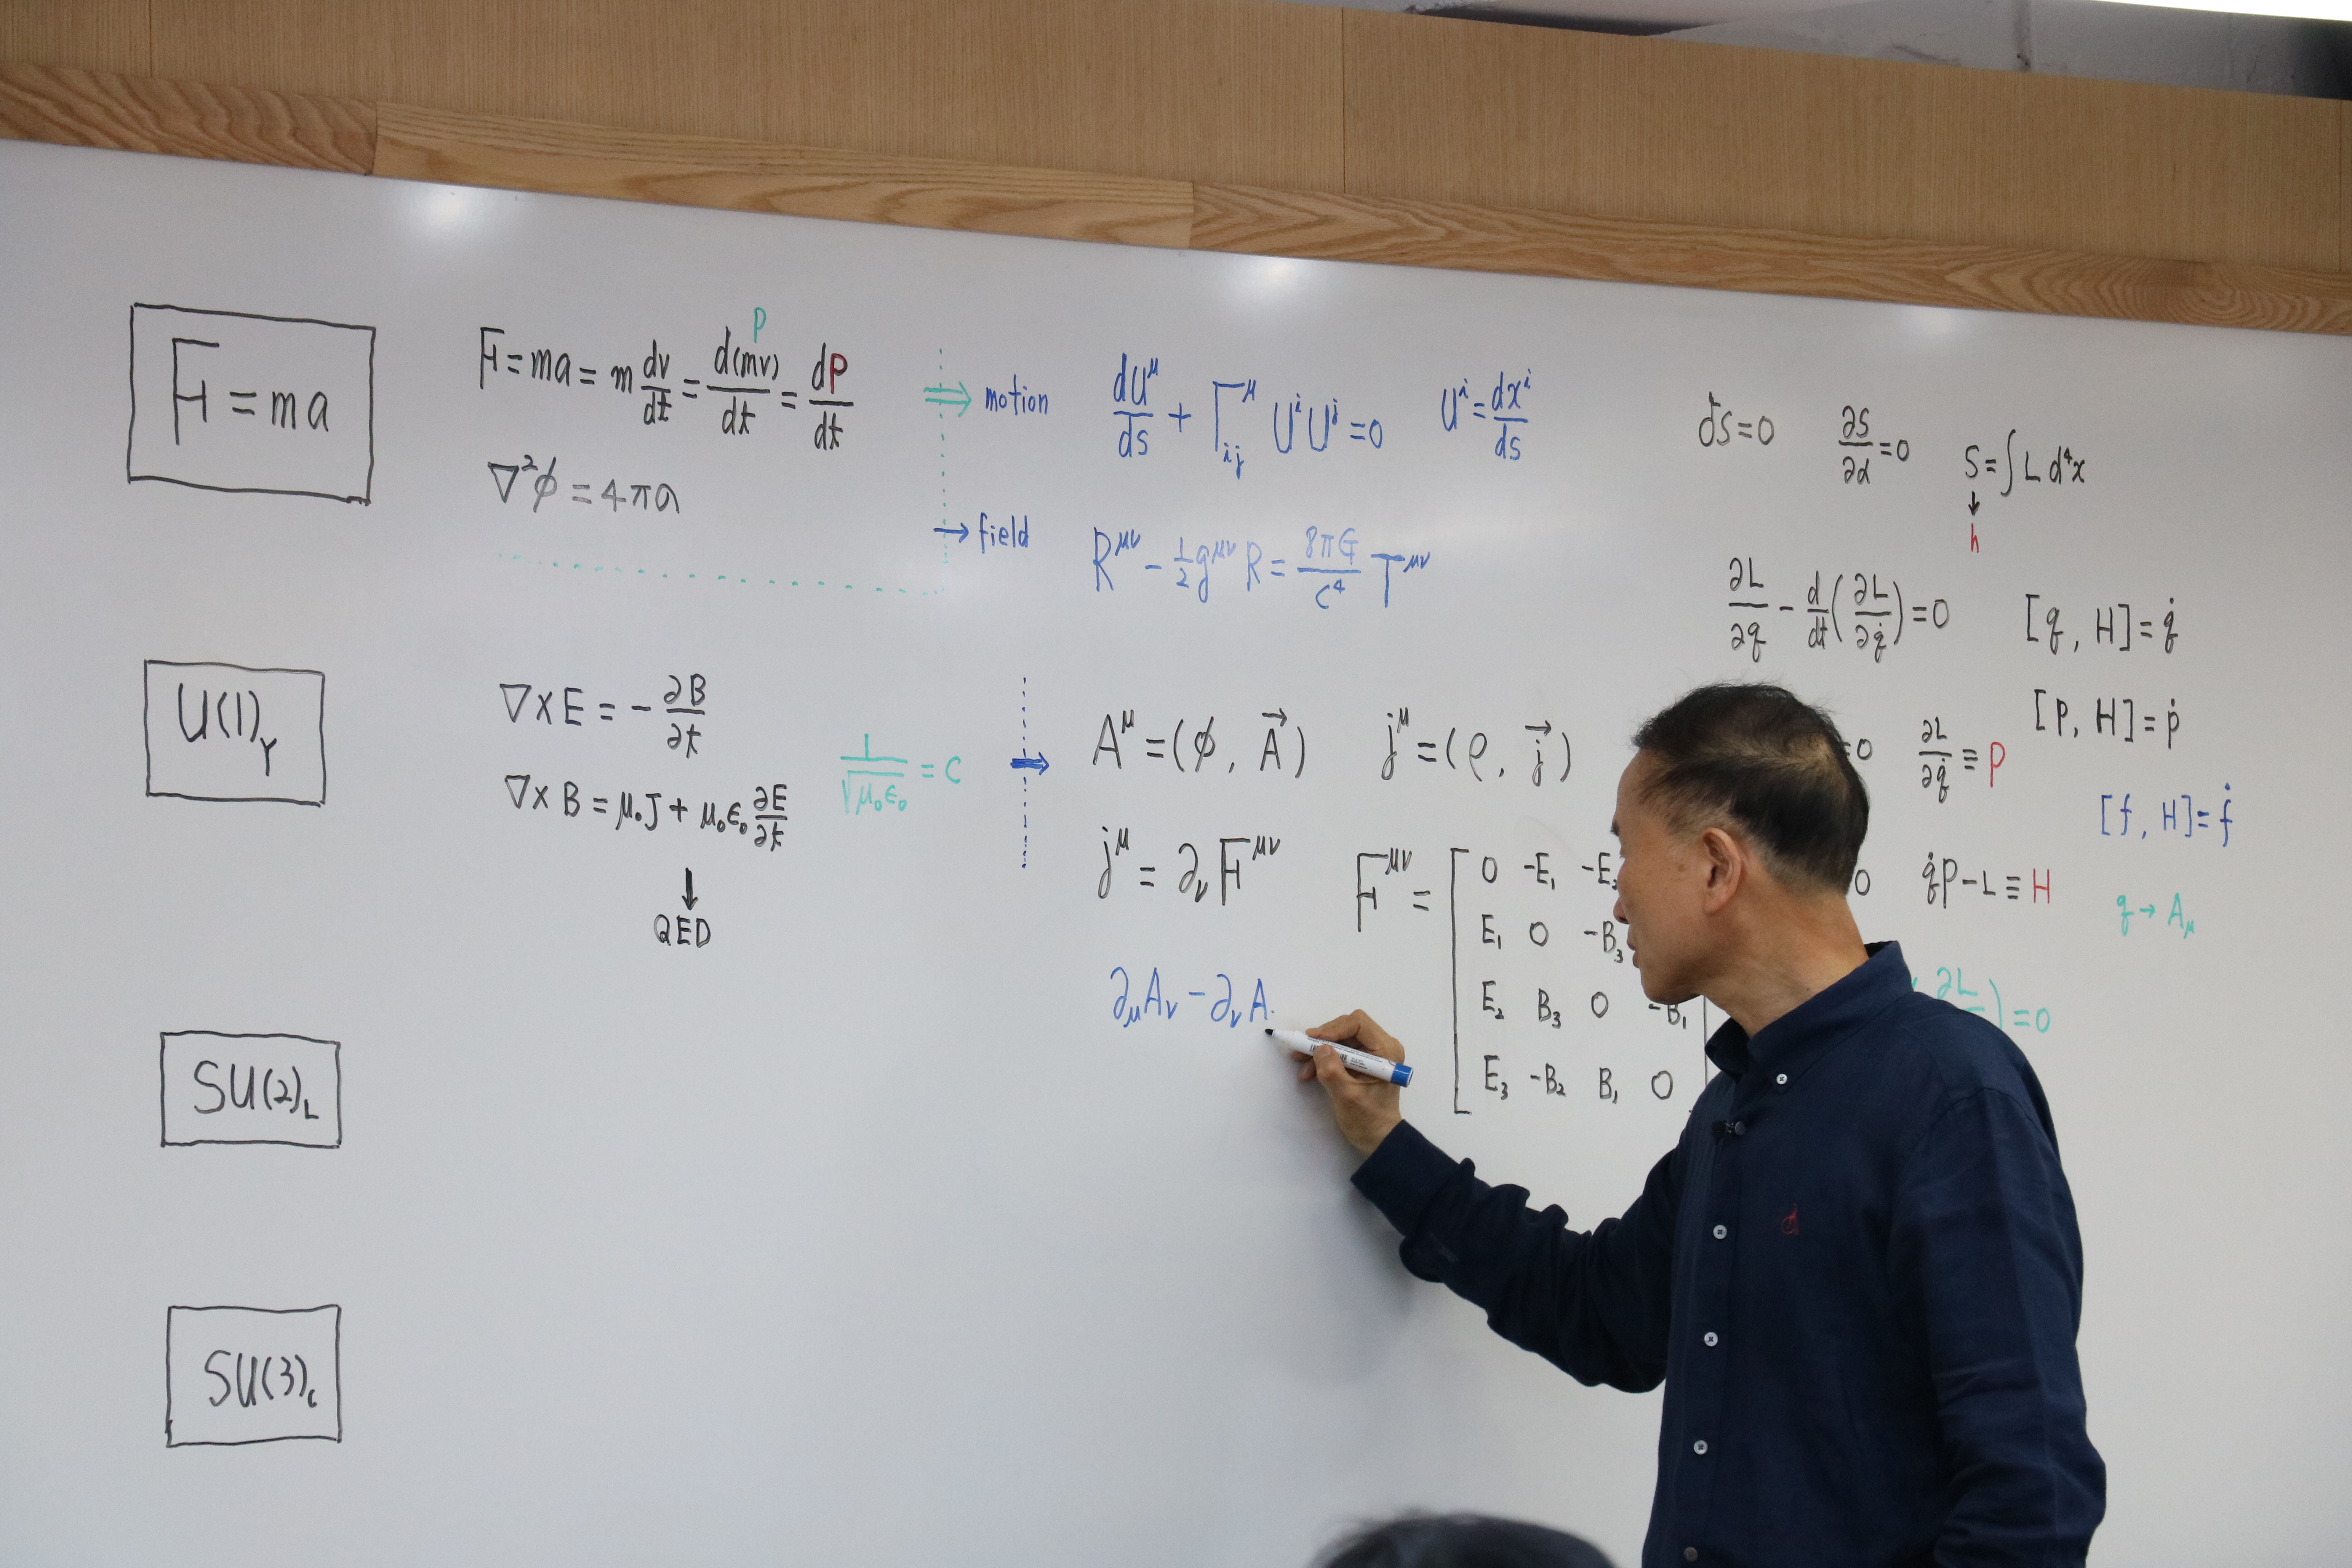 F = ma
F = ma = m dv/dt = d(mv)/dt = dP/dt
P
∇²ϕ = 4πρ
⇒ motion
dU^μ/ds + Γ^μ_ij U^i U^j = 0
U^i = dx^i/ds
→ field
R^μν - 1/2 g^μν R = 8πG/c⁴ T^μν
δS = 0
∂S/∂α = 0
S = ∫ L d⁴x
↓
h
∂L/∂q - d/dt(∂L/∂q̇) = 0
[q, H] = q̇
[p, H] = ṗ
[f, H] = ḟ
U(1)_Y
∇×E = -∂B/∂t
∇×B = μ₀J + μ₀ε₀ ∂E/∂t
↓
QED
1/√μ₀ε₀ = c
→
A^μ = (ϕ, A⃗)
j^μ = (ρ, j⃗)
j^μ = ∂_ν F^μν
F^μν =
0 -E₁ -E₂
E₁ 0 -B₃
E₂ B₃ 0 -B₁
E₃ -B₂ B₁ 0
∂_μ A_ν - ∂_ν A
=0
∂L/∂q̇ ≡ p
0
q̇p - L ≡ H
q → A_μ
∂L ) = 0
SU(2)_L
SU(3)_c